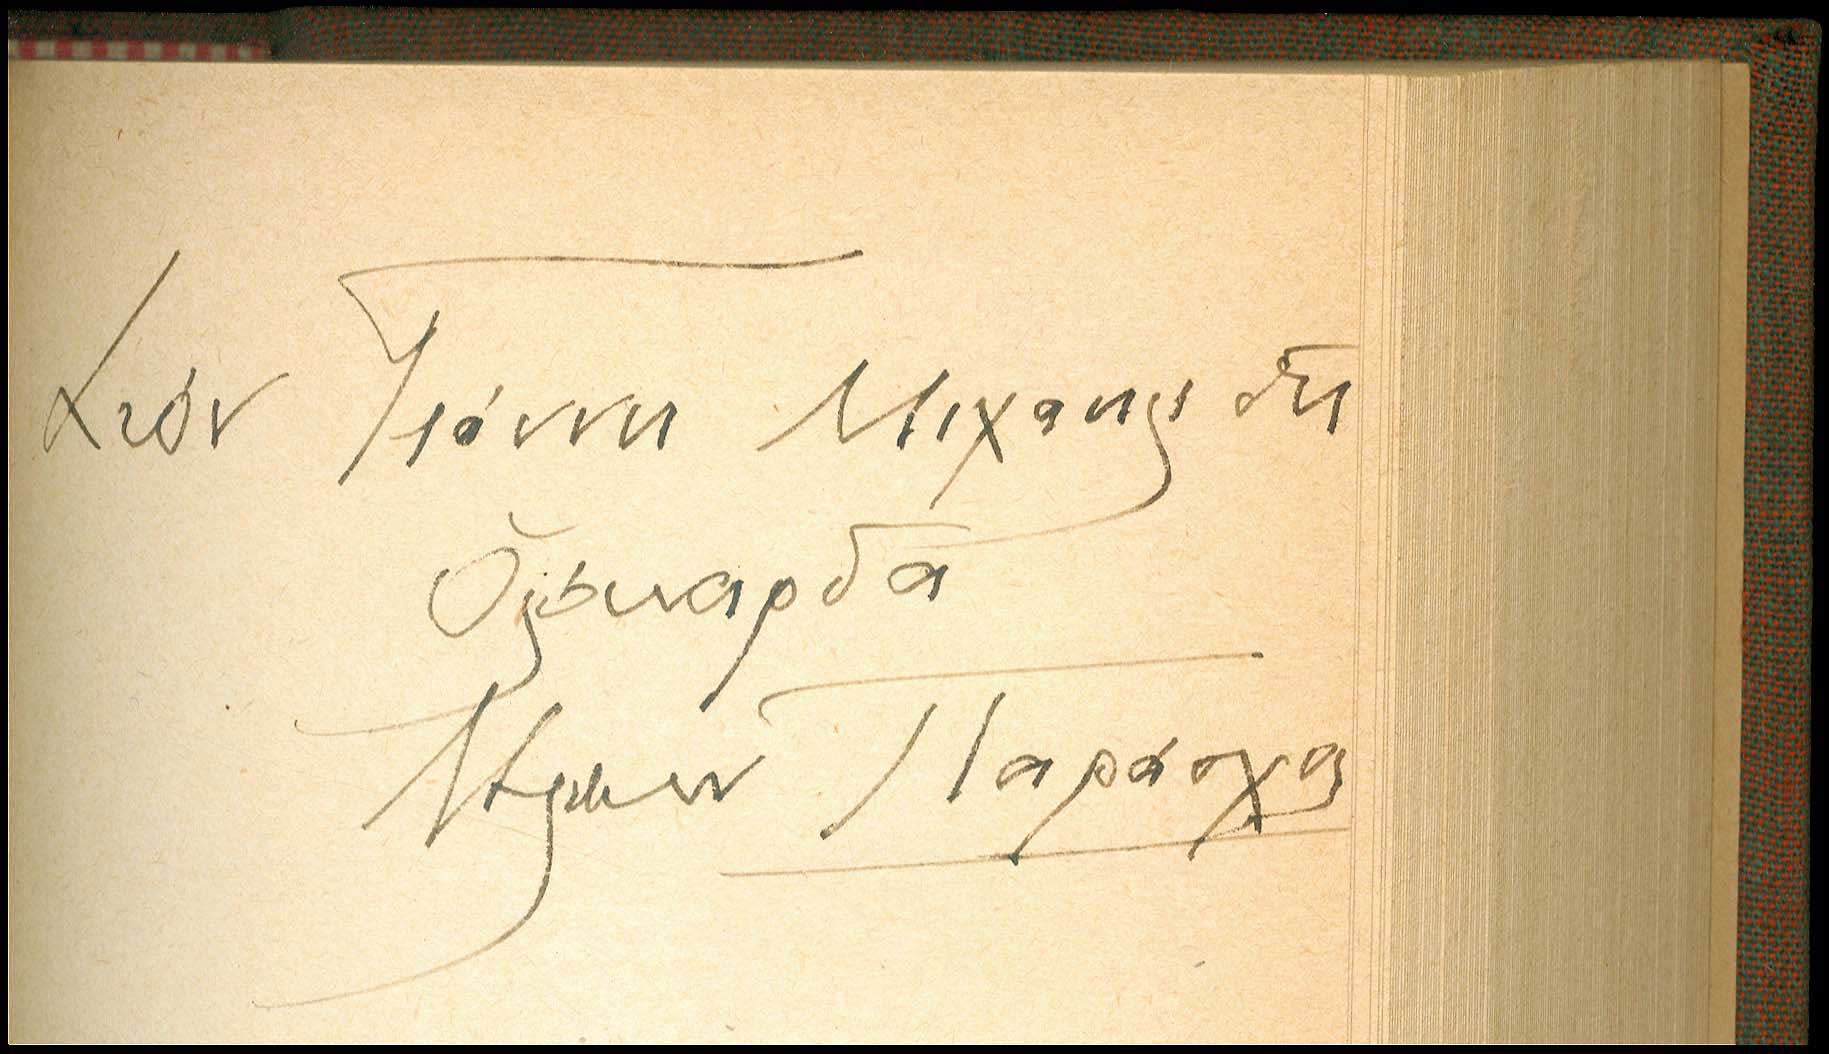 Στὸν Γιάννη Μιχαηλίδη
ὁλόκαρδα
Κλέων Παράσχος